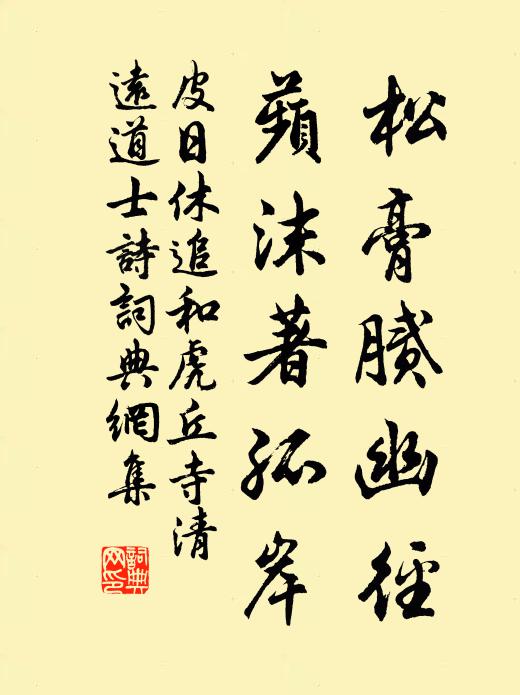 松膏膩幽徑
蘋沫著孤岸
皮日休追和虎丘寺清
遠道士詩詞典網集
詞典
网印